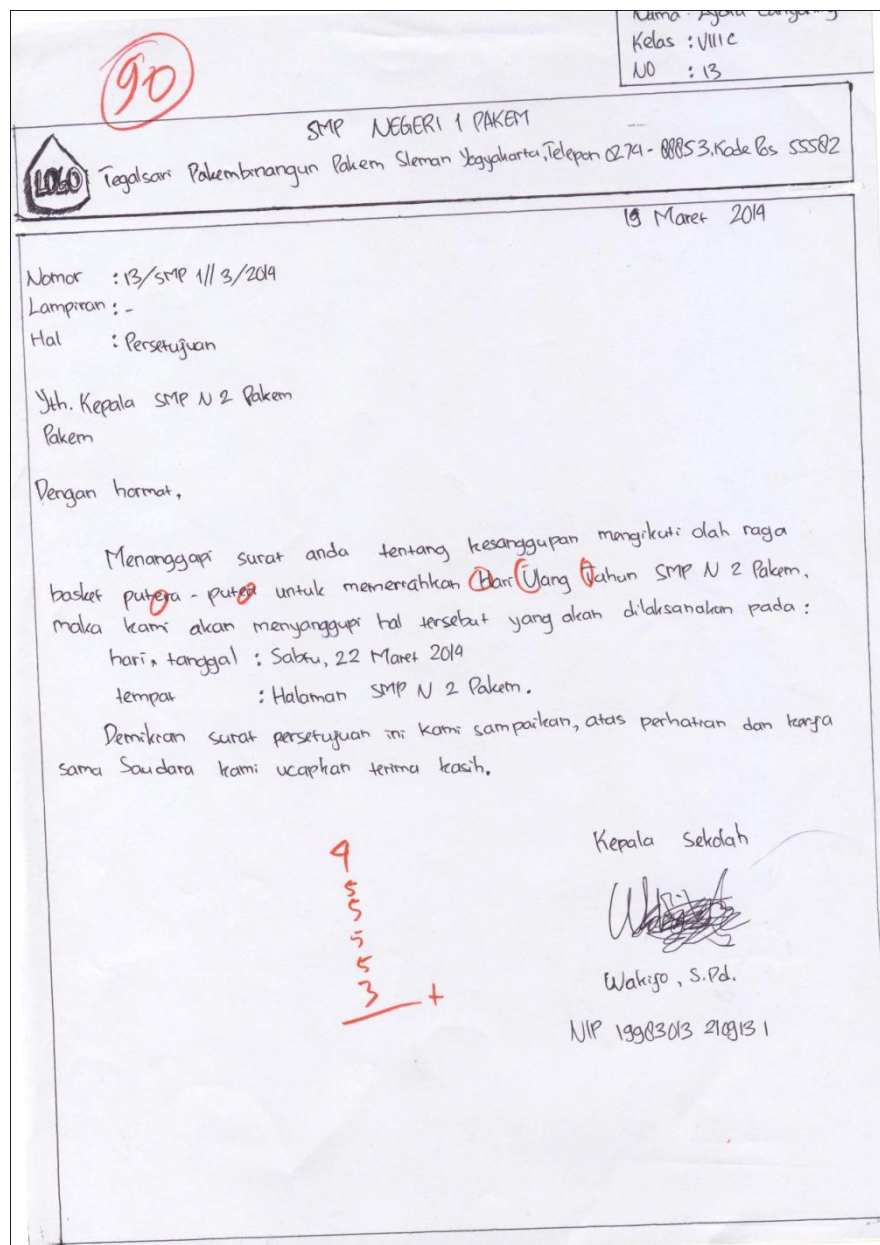 90
Nama :
Kelas : VIII C
NO : 13
SMP NEGERI 1 PAKEM
LOGO
Tegalsari Pakembinangun Pakem Sleman Yogyakarta, Telepon 0274 - 88853. Kode Pos 55582
19 Maret 2014
Nomor : 13/SMP 1// 3/2014
Lampiran : -
Hal : Persetujuan
Yth. Kepala SMP N 2 Pakem
Pakem
Dengan hormat,
Menanggapi surat anda tentang kesanggupan mengikuti olah raga
basket putera - putea untuk memeriahkan Hari Ulang Tahun SMP N 2 Pakem.
maka kami akan menyanggupi hal tersebut yang akan dilaksanakan pada :
hari, tanggal : Sabtu, 22 Maret 2014
tempat : Halaman SMP N 2 Pakem.
Demikian surat persetujuan ini kami sampaikan, atas perhatian dan kerja
sama Saudara kami ucapkan terima kasih.
Kepala Sekolah
4
5
5
5
5
3 +
S.Pd.
NIP